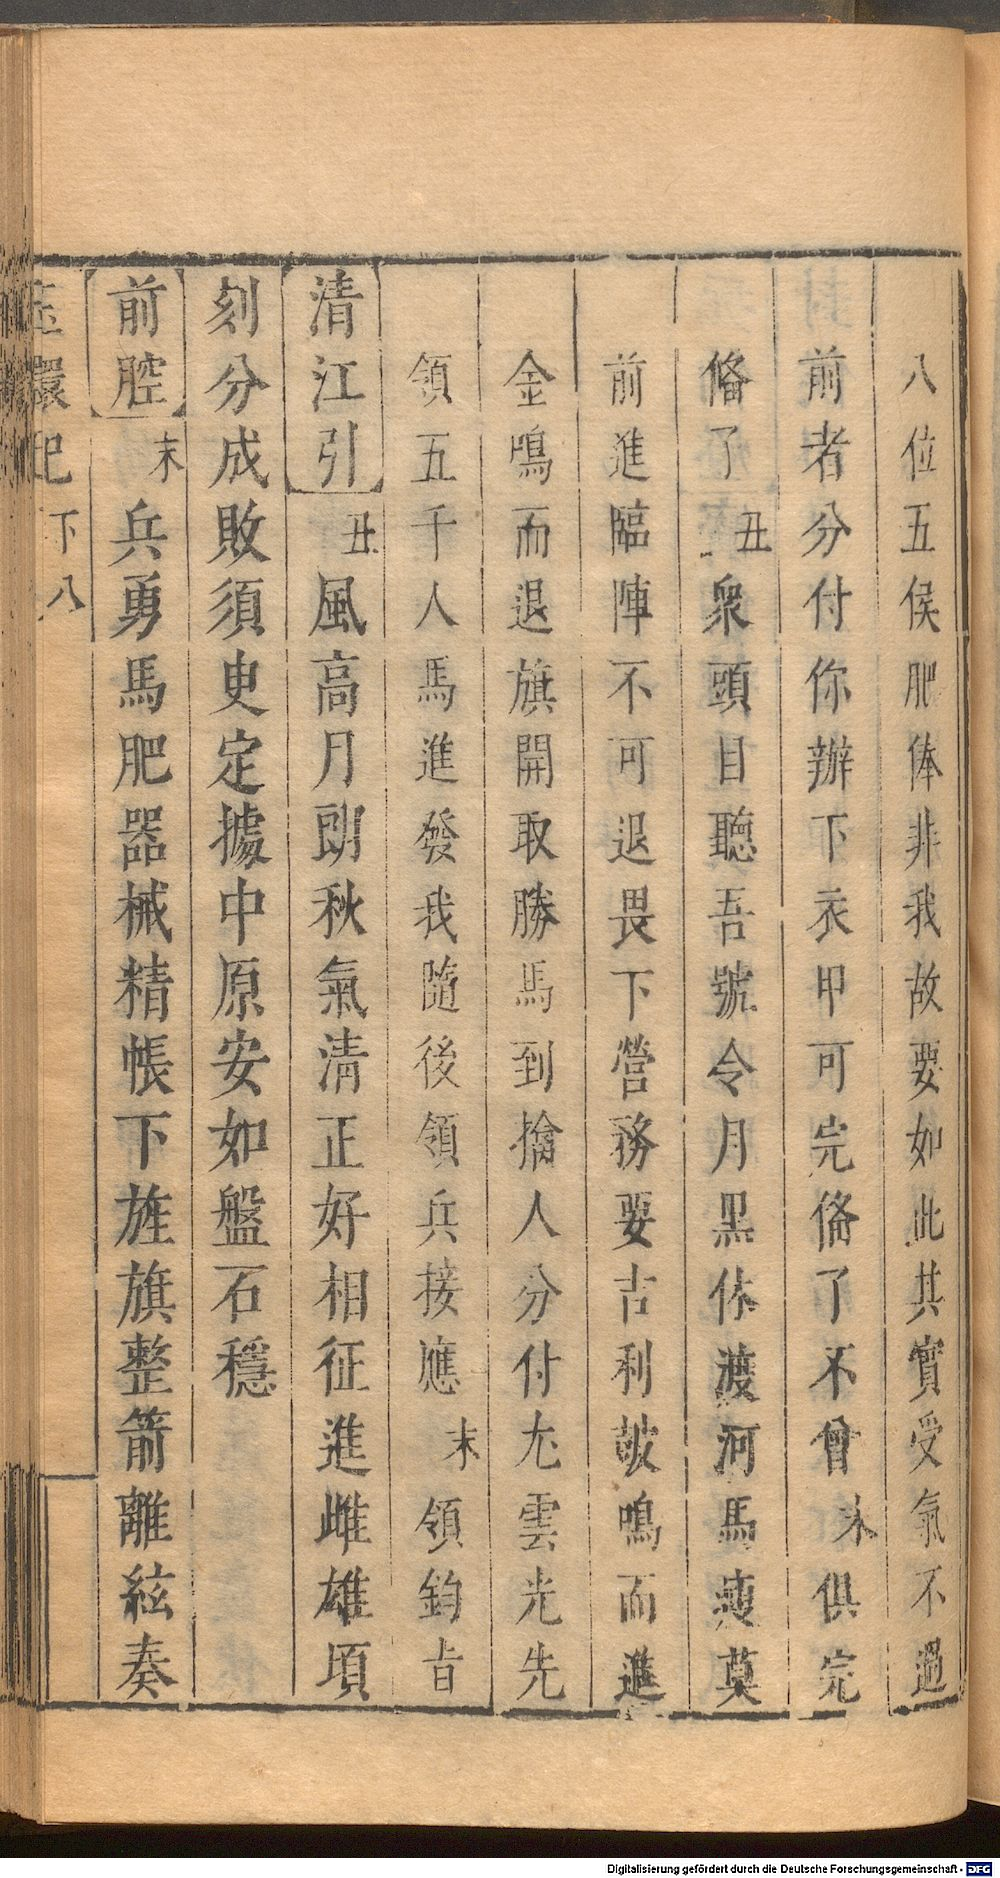 八位五侯肥体非我故要如此其實受氣不過
前者分付你辦下衣甲可完俻了不曾末俱完
俻了丑衆頭目聽吾號令月黑休渡河馬瘦莫
前進臨陣不可退畏下營務要吉利皷鳴而進
金鳴而退旗開取勝馬到擒人分付尢雲光先
領五千人馬進發我隨後領兵接應末領鈞旨
清江引丑風高月朗秋氣清正好相征進雌雄頃
刻分成敗須臾定據中原安如盤石穩
前腔末兵勇馬肥器械精帳下旌旗整箭離絃奏
玉環記 下 八
Digitalisierung gefördert durch die Deutsche Forschungsgemeinschaft - DFG